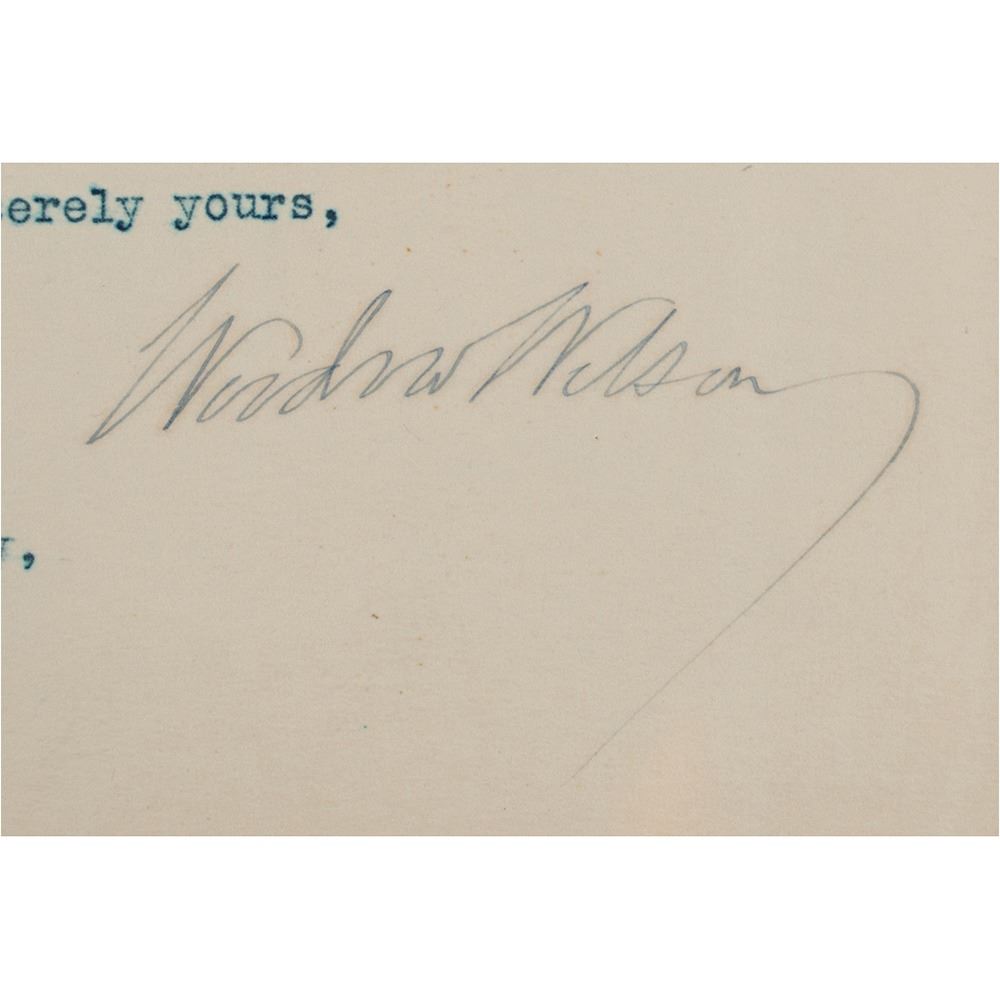 erely yours,
Woodrow Wilson
,